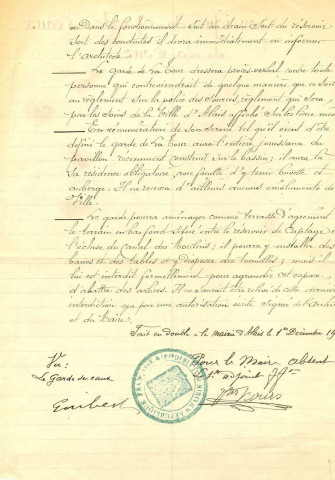 ou dans le fonctionnement soit du drain soit du réservoir
soit des conduites il devra immédiatement en informer
l'architecte
Le garde de la Tour dressera procès verbal contre toute
personne qui contreviendrait de quelque manière que ce soit
au règlement sur la police des sources, règlement qui sera
par les soins de la Ville d'Alais affiché sur les lieux mêmes
En rémunération de son service tel qu'il vient d'être
défini le garde de la Tour aura l'entière jouissance du
pavillon récemment construit sur le bassin; il aura là
sa résidence obligatoire, avec faculté d'y tenir buvette et
auberge. Il ne recevra d'ailleurs aucuns émoluments de
Ville
Le garde pourra aménager comme terrasse d'agrément
le terrain en bas fond situé entre le réservoir de captage et
l'écluse du Canal des Moulins; il pourra y installer des
bancs et des tables et y disposer des tonnelles; mais il
lui est interdit formellement pour agrandir cet espace
d'abattre des arbres. Il ne saurait être relevé de cette dernière
interdiction que par une autorisation écrite signée de l'architecte
et du Maire.
Fait en double à la mairie d'Alais le 1er Décembre 19
Vu:
Le Garde des eaux
Pour le Maire absent
Le 1er adjoint
RÉPUBLIQUE FRANÇAISE